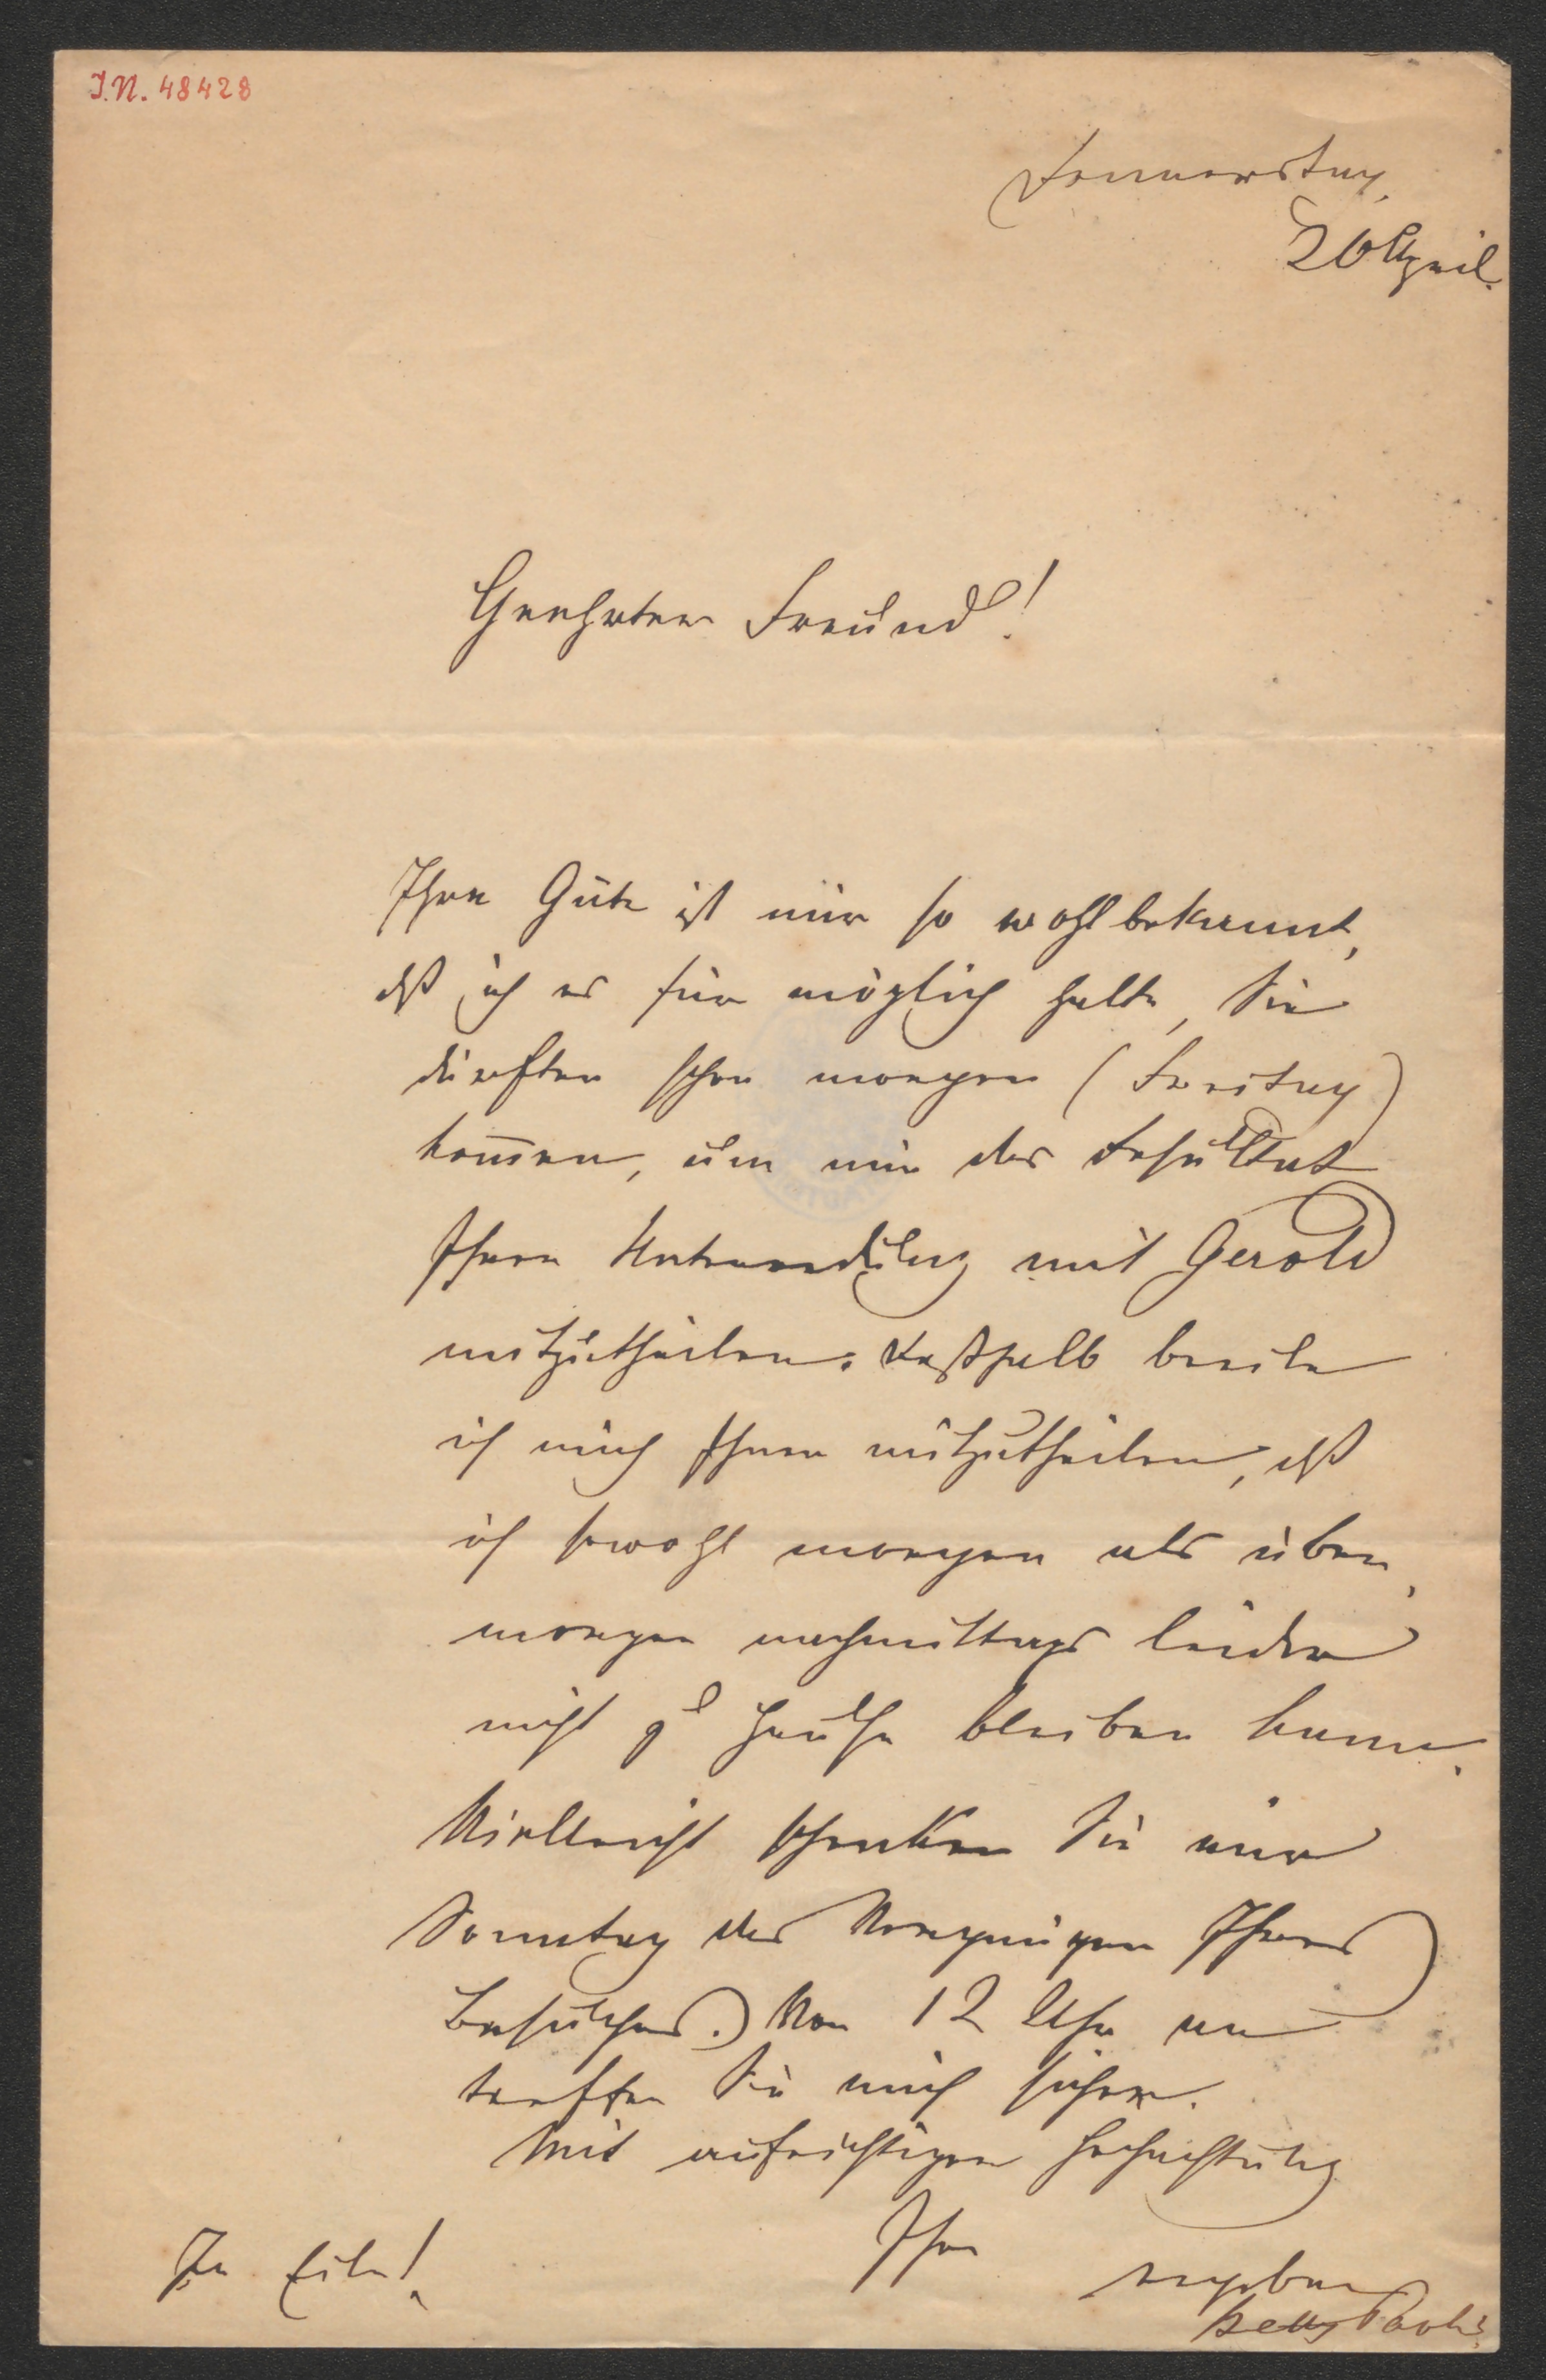 I.N. 48428
Donnerstag,
26 April.
Geehrter Freund!
Ihre Güte ist mir so wohlbekannt,
dß ich es für möglich halte, Sie
dürften schon morgen (Freitag)
kom̅en, um mir das Resultat
Ihrer Unterredung mit Gerold
mitzutheilen. Deßhalb beeile
ich mich Ihnen mitzutheilen, dß
ich sowohl morgen als über,
morgen nachmittags leider
nicht zu Hause bleiben kann.
Vielleicht schenken Sie mir
Sonntag das Vergnügen Ihres
Besuches. Von 12 Uhr an
treffen Sie mich sicher.
Mit aufrichtiger Hochachtung
Ihre
ergebene
In Eile!
Betty Paoli